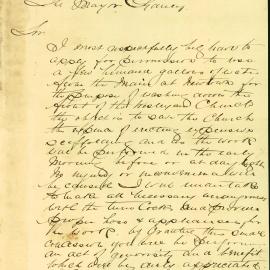 The Mayor
Sir
I most respectfully beg leave to
apply for permission to use
a few hundred gallons of water
from the Main at Newtown for
the purpose of washing down the
front of the Wesleyan Church
the object is to save the Church
the expense of erecting expensive
scaffolding and as the work
will be performed in the early
Morning before or at day light
no injury or inconvenience will
be caused. I will undertake
to make all necessary arrangements
with the turn Cocks and provide
proper hose & appliances for
the work, by granting this small
concession you will be performing
an act of generosity and a benefit
which will be duly appreciated